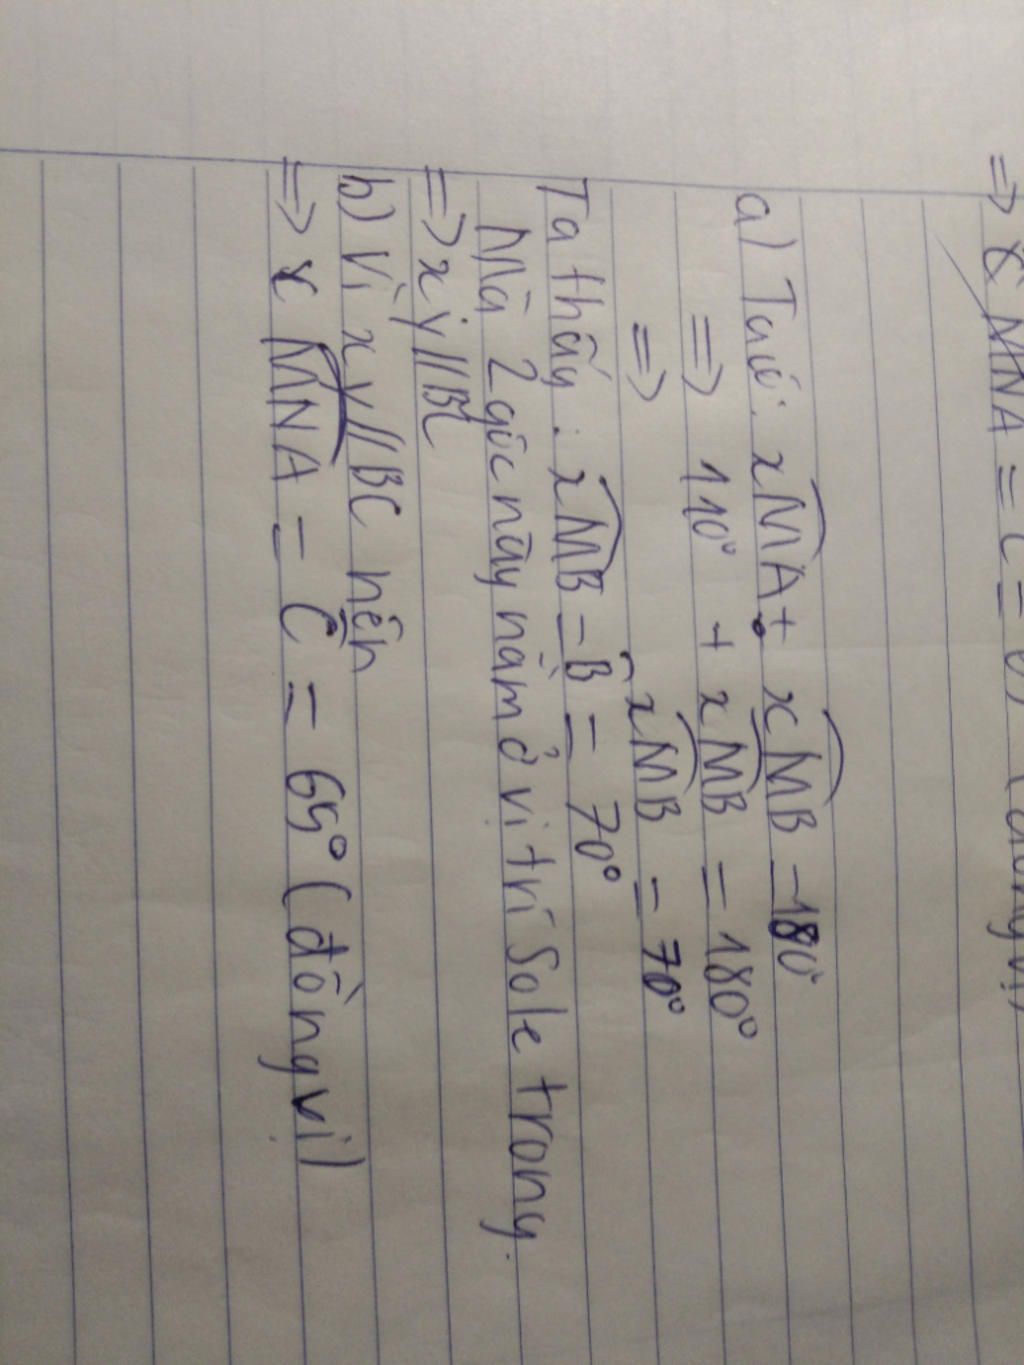 => MNA = C =
a) Ta có: xMA + xMB = 180°
=> 110° + xMB = 180°
=> xMB = 70°
Ta thấy: xMB = B = 70°
Mà 2 góc này nằm ở vị trí Sole trong.
=> xy // BC
b) Vì xy // BC nên
=> MNA = C = 65° (đồng vị)